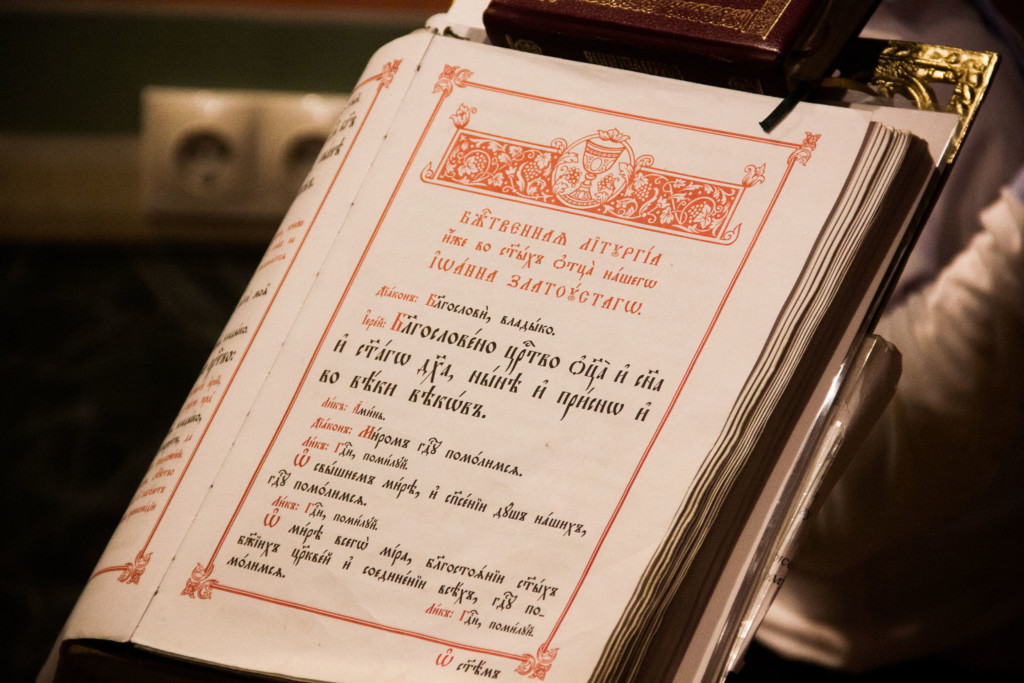 Бж҃твеннаѧ лїтꙋргі́а
и҆́же во ст҃ы́хъ ѻ҆тца̀ на́шегѡ
І҆ѡа́нна Златоꙋ́стагѡ.
Дїа́конъ: Бл҃гословѝ, влады́ко.
І҆ере́й: Бл҃гослове́но црⷭ҇тво ѻ҆ц҃а̀ и҆ сн҃а
и҆ ст҃а́гѡ дх҃а, ны́нѣ и҆ при́снѡ и҆
во вѣ́ки вѣкѡ́въ.
Ли́къ: А҆ми́нь.
Дїа́конъ: Ми́ромъ гдⷭ҇ꙋ помо́лимсѧ.
Ли́къ: Гдⷭ҇и, поми́лꙋй.
Ѡ҆ свы́шнемъ ми́рѣ, и҆ сп҃се́нїи дꙋ́шъ на́шихъ,
гдⷭ҇ꙋ помо́лимсѧ.
Ли́къ: Гдⷭ҇и, поми́лꙋй.
Ѡ҆ ми́рѣ всегѡ̀ мі́ра, бл҃гостоѧ́нїи ст҃ы́хъ
бж҃їихъ цр҃кве́й и҆ соедине́нїи всѣ́хъ, гдⷭ҇ꙋ по-
мо́лимсѧ.
Ли́къ: Гдⷭ҇и, поми́лꙋй.
Ѡ҆ ст҃ѣ́мъ